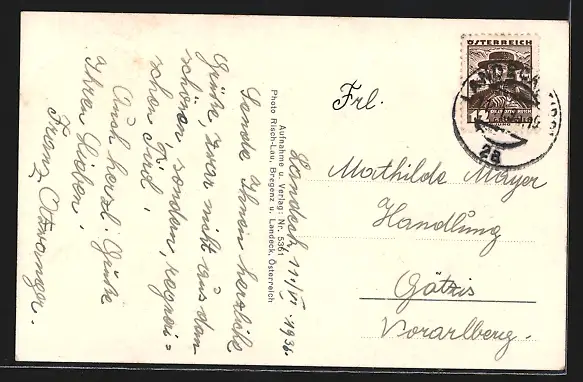 Landeck 11/VI. 1936.
Sende Ihnen herzlichste
Grüße, zwar nicht aus dem
schönen, sondern, regneri=
schen Tirol!
Auch herzl. Grüße
Ihren Lieben!
Franz
Aufnahme u. Verlag: Nr. 5361
Photo Risch-Lau, Bregenz u. Landeck, Österreich
ÖSTERREICH
LANDECK
2a
Frl.
Mathilde Mayer
Handlung
Götzis
Vorarlberg.